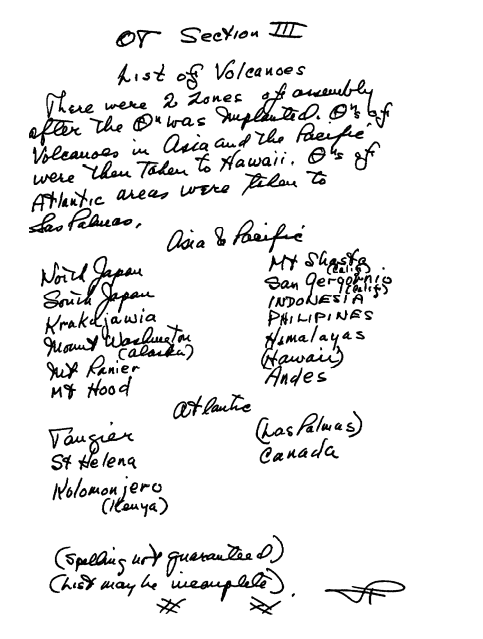 OT Section III
List of Volcanoes
There were 2 zones of assembly
after the Θⁿ was implanted. Θⁿs of
Volcanoes in Asia and the Pacific
were then taken to Hawaii. Θⁿs of
Atlantic areas were taken to
Las Palmas.
Asia & Pacific
North Japan
South Japan
Krakajawia
Mount Washington
(alaska)
Mt Ranier
Mt Hood
Mt Shasta
(Calif)
San Gergornio
(Calif)
INDONESIA
PHILIPINES
Himalayas
(Hawaii)
Andes
Atlantic
Tangier
St Helena
Kolomonjero
(Kenya)
(Las Palmas)
Canada
(Spelling not guaranteed)
(List may be incomplete).